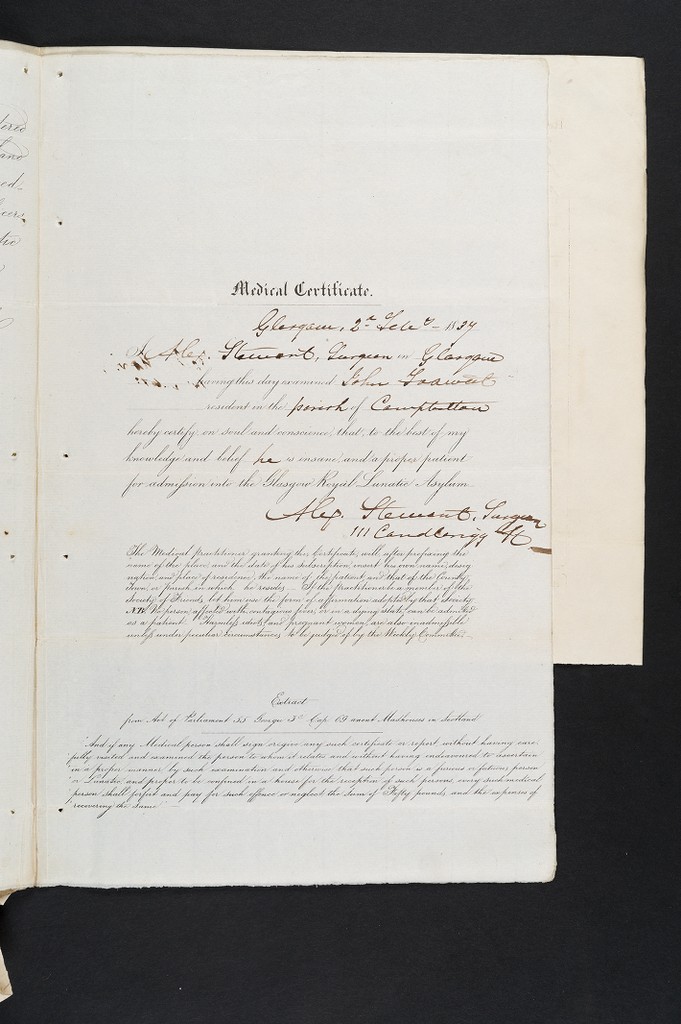 Medical Certificate.
Glasgow, 2d Feby 1837
I Alex. Stewart, Surgeon in Glasgow
having this day examined John
resident in the parish of Campbelton
hereby certify, on soul and conscience, that, to the best of my
knowledge and belief he is insane, and a proper patient
for admission into the Glasgow Royal Lunatic Asylum
Alex. Stewart, Surgeon
111 Candlerigg St
The Medical practitioner granting this Certificate, will, after prefixing the
name of the place, and the date of his subscription, insert his own name, desig
nation, and place of residence, the name of the patient, and that of the County,
Town, or Parish in which he resides — If the practitioner be a member of the
Society of Friends, let him use the form of affirmation adopted by that Society.
NB No person affected with contagious fever, or in a dying state, can be admitted
as a patient. Harmless idiots, and pregnant women, are also inadmissible
unless under peculiar circumstances to be judged of by the Weekly Committee.
Extract
from Act of Parliament 55 George 3d Cap. 69 anent Madhouses in Scotland
And if any Medical person shall sign or give any such certificate or report, without having care
fully visited and examined the person to whom it relates and without having endeavoured to ascertain
in a proper manner by such examination and otherwise that such person is a furious or fatuous person
or Lunatic, and proper to be confined in a house for the reception of such persons, every such medical
person shall forfeit and pay for such offence or neglect the sum of Fifty pounds, and the expenses of
recovering the same